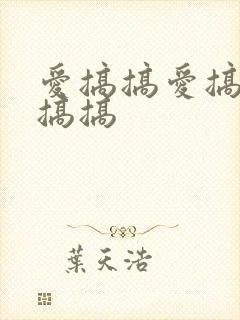 愛搞搞愛搞
搞搞
葉天浩